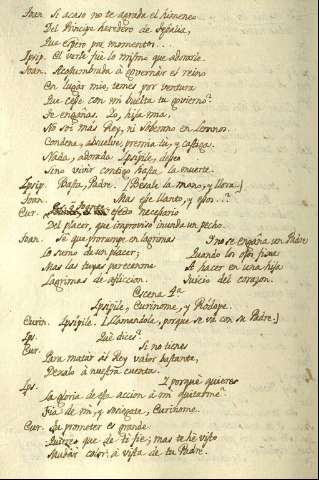 Toan. Si acaso no te agrada el himeneo
Del Principe heredero de Tesalia,
Que espero por momentos...
Ipsip. El verle fue lo mismo que adorarle.
Toan. Acostumbrada à governar el reino
En lugar mio, temes por ventura
Que cese con mi buelta tu govierno?
Te engañas. Yo, hija mia,
No soi mas Rey, ni Soberano en Lemnos.
Condena, absuelve, premia tu, y castiga.
Nada, adorada Ipsipile, deseo
Sino vivir contigo hasta la muerte.
Ipsip. Basta, Padre. [Besale la mano, y llora.]
Toan. Mas ese llanto, y que...?
Cur. Es efecto necesario
Del placer, que improviso inunda un pecho.
Toan. Se que prorrumpe en lagrimas
Lo sumo de un placer;
Mas las tuyas parecenme
Lagrimas de afliccion.
I no se engaña un Padre
Quando los ojos fixa
A hacer en una hija
Juicio del corazon.
Escena 4ª
Ipsipile, Curinome, y Ródope.
Curin. Ipsipile. [Llamandole, porque se va con su Padre.]
Ips. Què dices?
Cur. Si no tienes
Para matar al Rey valor bastante,
Dexalo à nuestra cuenta.
Ips. I porquè quieres
La gloria de esta accion à mi quitarme?
Fia de mi, y sosiegate, Curinome.
Cur. La promesa es grande.
Quieres que de ti fie; mas te he visto
Mudar color à vista de tu Padre.